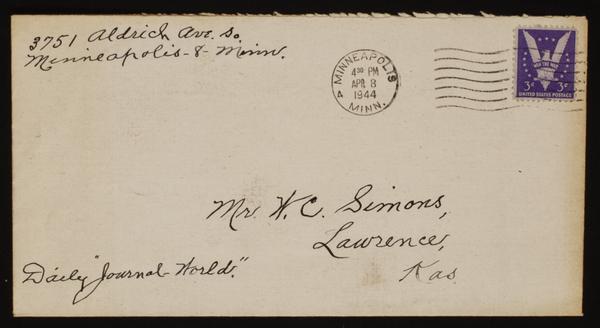 3751 Aldrich Ave. So.
Minneapolis-8-Minn.
MINNEAPOLIS
4 30 PM
APR 8
1944
MINN.
4
WIN THE WAR
3¢ 3¢
UNITED STATES POSTAGE
Mr. W. C. Simons,
Lawrence,
Kas.
Daily "Journal-World."